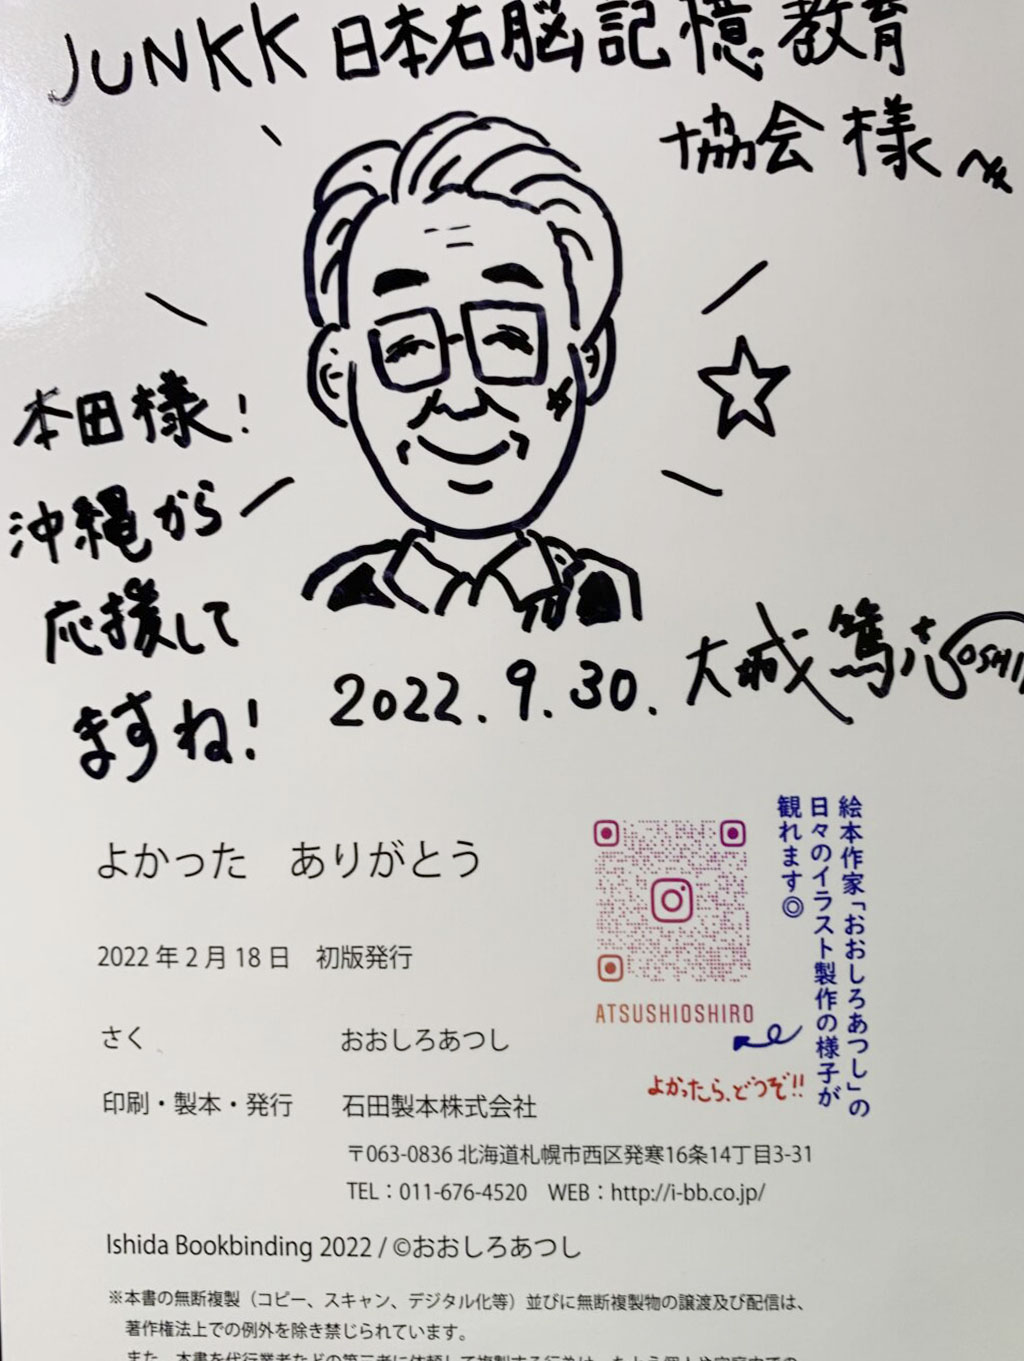 JUNKK 日本右脳記憶教育
協会様へ
本田様！
沖縄から
応援して
ますね！
2022.9.30. 大城篤志
よかった　ありがとう
2022年2月18日　初版発行
さく　おおしろあつし
印刷・製本・発行　石田製本株式会社
〒063-0836 北海道札幌市西区発寒16条14丁目3-31
TEL：011-676-4520　WEB：http://i-bb.co.jp/
Ishida Bookbinding 2022 / ©おおしろあつし
※本書の無断複製（コピー、スキャン、デジタル化等）並びに無断複製物の譲渡及び配信は、
著作権法上での例外を除き禁じられています。
また、本書を代行業者などの第三者に依頼して複製する行為は、たとえ個人や家庭内での
絵本作家「おおしろあつし」の
日々のイラスト製作の様子が
観れます◎
ATSUSHIOSHIRO
よかったら、どうぞ!!